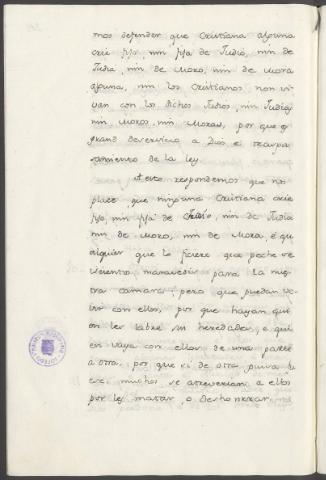 mos defender que Cristiana alguna
crie fijo, nin fija de Judio, nin de
Judia, nin de Moro, nin de Mora
alguna, nin los Cristianos non vi-
van con los dichos Judios, nin Judias
nin Moros, nin Moras, por que es
grand deservicio a Dios e traspa-
samiento de la ley.
A esto respondemos que nos
place que ninguna Cristiana crie
fijo, nin fija de Judio, nin de Judia
nin de Moro, nin de Mora, e qu
alquier que lo ficiere que peche se-
iscientos maravedis para la nues-
tra camara; pero que puedan vi-
vir con ellos, por que hayan qui
en les labre sus heredades, e qui
en vaya con ellos de una parte
a otra, por que si de otra guisa fu
ese, muchos se atreverian a ellos
por les matar, o deshonrrar